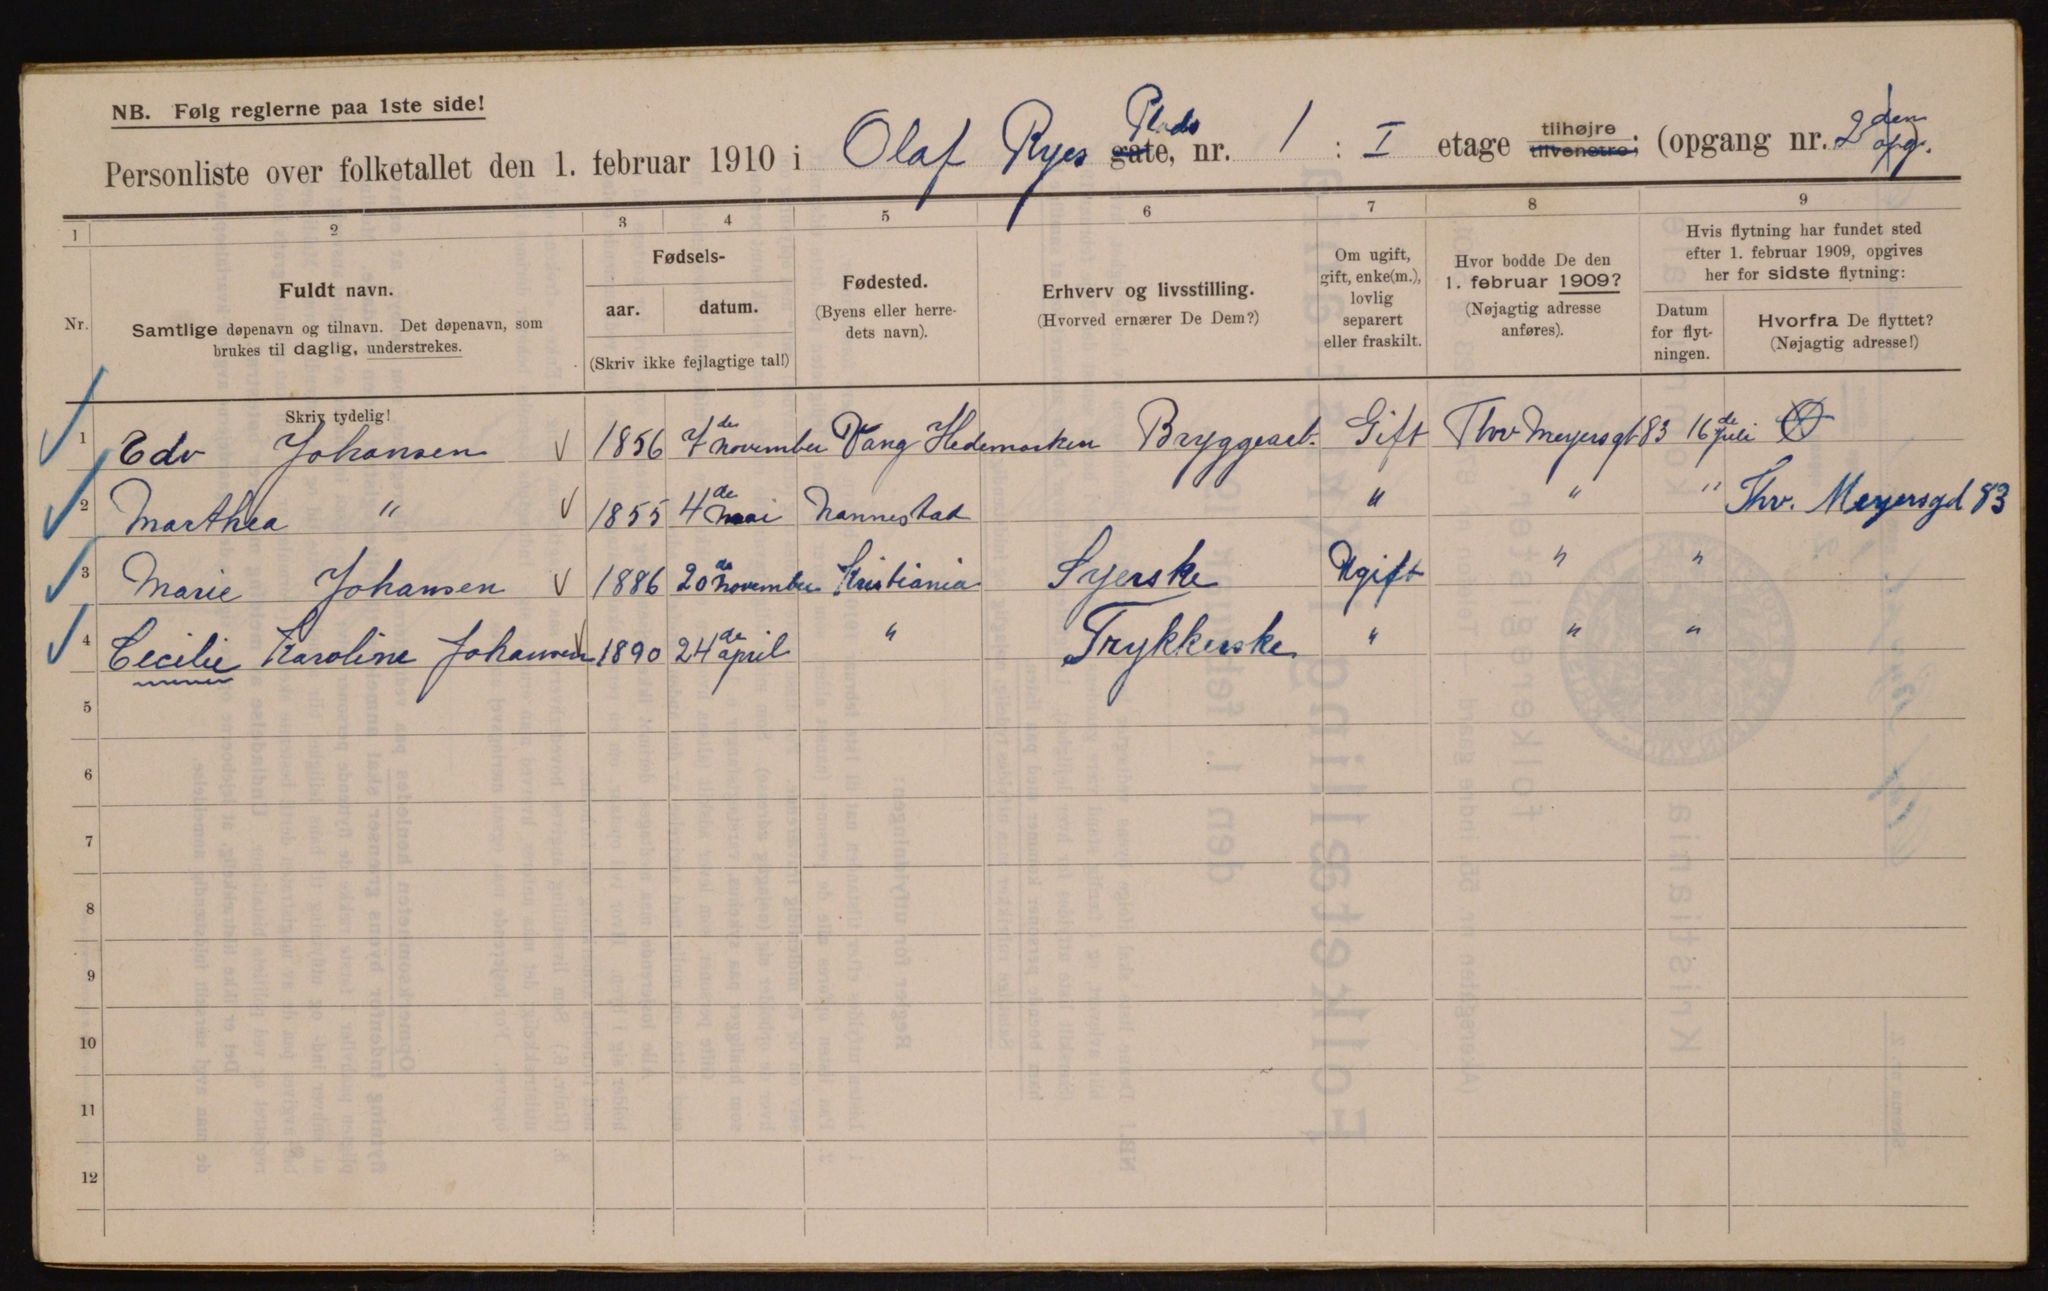 NB. Følg reglerne paa 1ste side!
Personliste over folketallet den 1. februar 1910 i Olaf Ryes Plads gate, nr. 1 : I etage tilhøjre tilvenstre; (opgang nr. 2den opg.)
1 2 3 4 5 6 7 8 9
Nr.
Fuldt navn.
Samtlige døpenavn og tilnavn. Det døpenavn, som
brukes til daglig, understrekes.
Skriv tydelig!
Fødsels-
aar. datum.
(Skriv ikke fejlagtige tal!)
Fødested.
(Byens eller herre-
dets navn).
Erhverv og livsstilling.
(Hvorved ernærer De Dem?)
Om ugift,
gift, enke(m.),
lovlig
separert
eller fraskilt.
Hvor bodde De den
1. februar 1909?
(Nøjagtig adresse
anføres).
Hvis flytning har fundet sted
efter 1. februar 1909, opgives
her for sidste flytning:
Datum
for flyt-
ningen.
Hvorfra De flyttet?
(Nøjagtig adresse!)
1 Edv Johansen 1856 7de november Vang Hedemarken Bryggearb. Gift Thv Meyersgt 83 16de juli
2 Marthea " 1855 4de mai Nannestad " " " Thv. Meyersgd 83
3 Marie Johansen 1886 20de november Kristiania Syerske Ugift " "
4 Cecilie Karoline Johansen 1890 24de april " Trykkerske " " "
5
6
7
8
9
10
11
12